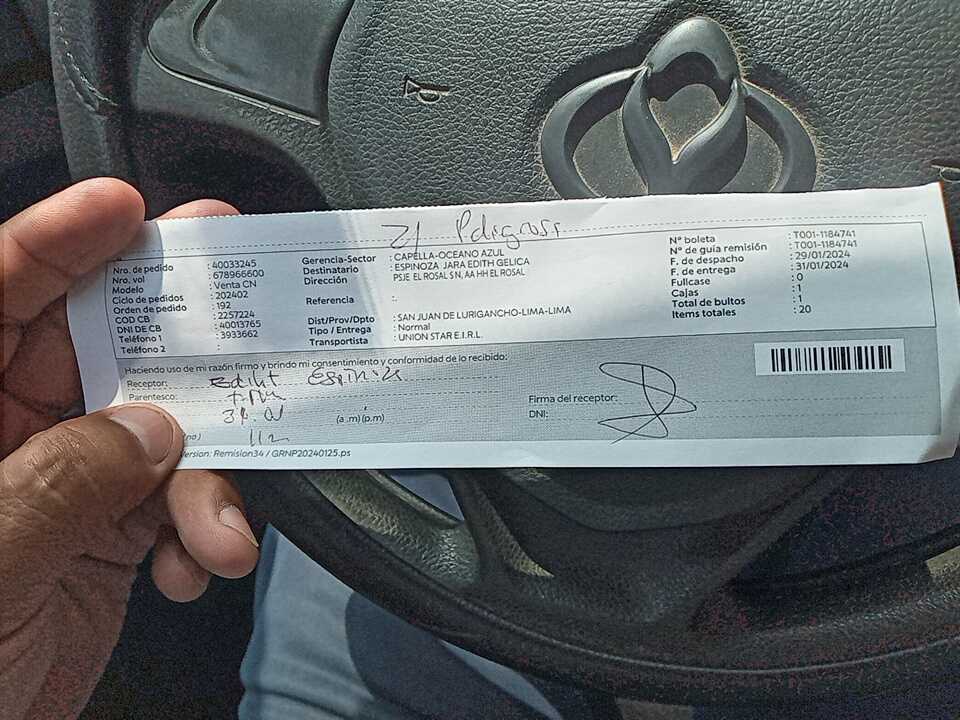 Z1 Peligrosa
Nro. de pedido : 40033245
Nro. vol : 678966600
Modelo : Venta CN
Ciclo de pedidos : 202402
Orden de pedido : 192
COD CB : 2257224
DNI DE CB : 40013765
Teléfono 1 : 3933662
Teléfono 2 :
Gerencia-Sector : CAPELLA-OCEANO AZUL
Destinatario : ESPINOZA JARA EDITH GELICA
Dirección PSJE EL ROSAL SN, AA HH EL ROSAL
Referencia :.
Dist/Prov/Dpto : SAN JUAN DE LURIGANCHO-LIMA-LIMA
Tipo / Entrega : Normal
Transportista : UNION STAR E.I.R.L.
N° boleta : T001-1184741
N° de guía remisión : T001-1184741
F. de despacho : 29/01/2024
F. de entrega : 31/01/2024
Fullcase : 0
Cajas : 1
Total de bultos : 1
Items totales : 20
Haciendo uso de mi razón firmo y brindo mi consentimiento y conformidad de lo recibido:
Receptor: Ediht Espinoza
Parentesco:
(a .m) (p.m)
Firma del receptor:
DNI:
Version: Remision34 / GRNP20240125.ps